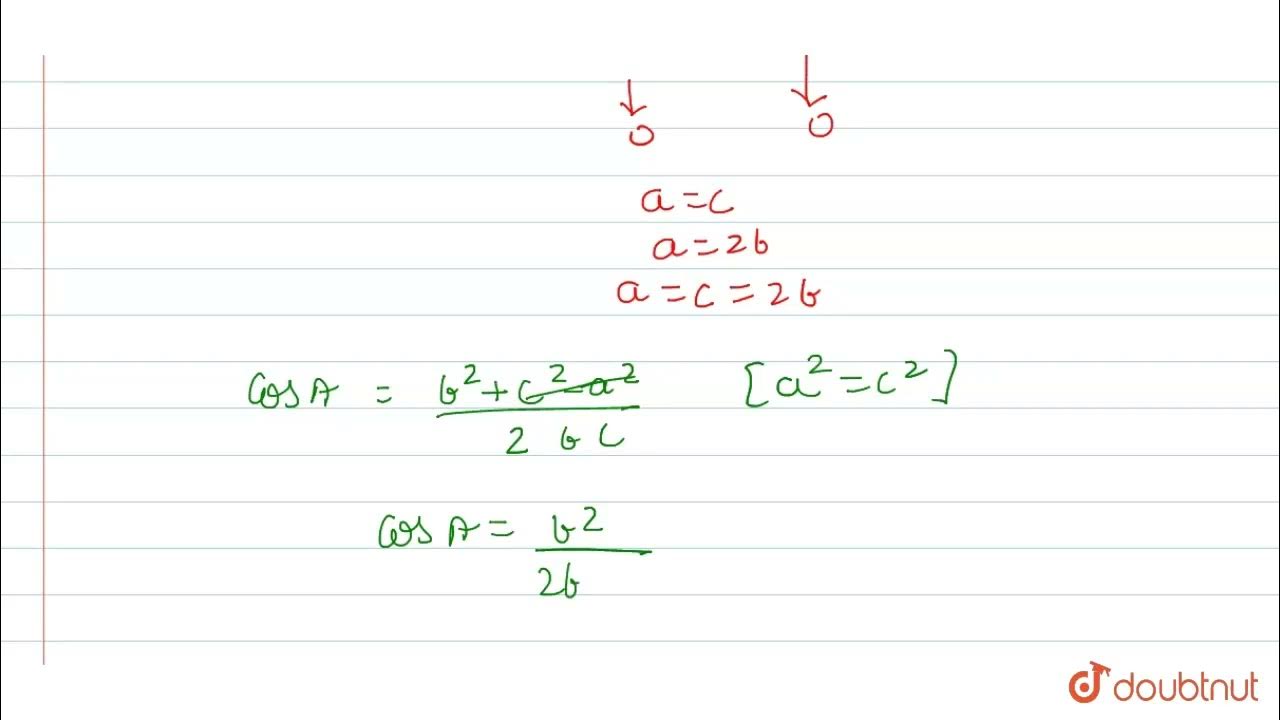 0 0
a = c
a = 2b
a = c = 2b
cos A = b² + c² - a² / 2 b c [a² = c²]
cos A = b² / 2b
doubtnut